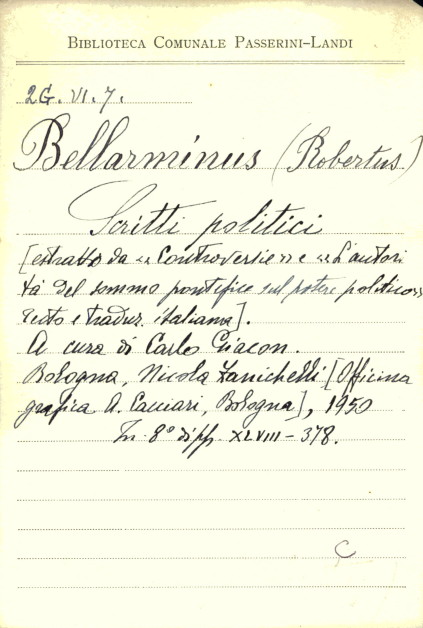 BIBLIOTECA COMUNALE PASSERINI-LANDI
2G. VI. 7.
Bellarminus (Robertus)
Scritti politici
[estratto da «Controversie» e «L'autori
tà del sommo pontefice sul potere politico»
Testo e traduz. italiana].
A cura di Carlo Giacon.
Bologna, Nicola Zanichelli [Officina
grafica A. Cacciari, Bologna], 1950
In 8° di pp. XLVIII-378.
C